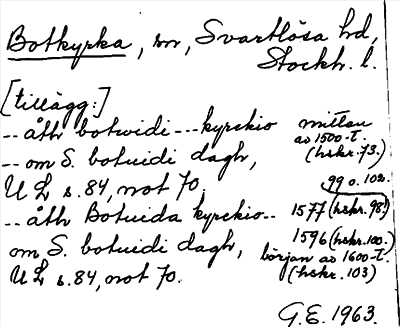 Botkyrka, sn, Svartlösa hd,
Stockh. l.
[tillägg:]
-- åth botwidi --- kyrckio mittan av 1500-t. (hskr. 73.)
-- om S. botuidi dagh, 99 o. 102.
U L s. 84, not 70.
-- åth Botuida kyrckio-- 1577 (hskr. 98.)
om S. botuidi dagh, 1596 (hskr. 100.)
U L s. 84, not 70. början av 1600-t. (hskr. 103)
G.E. 1963.